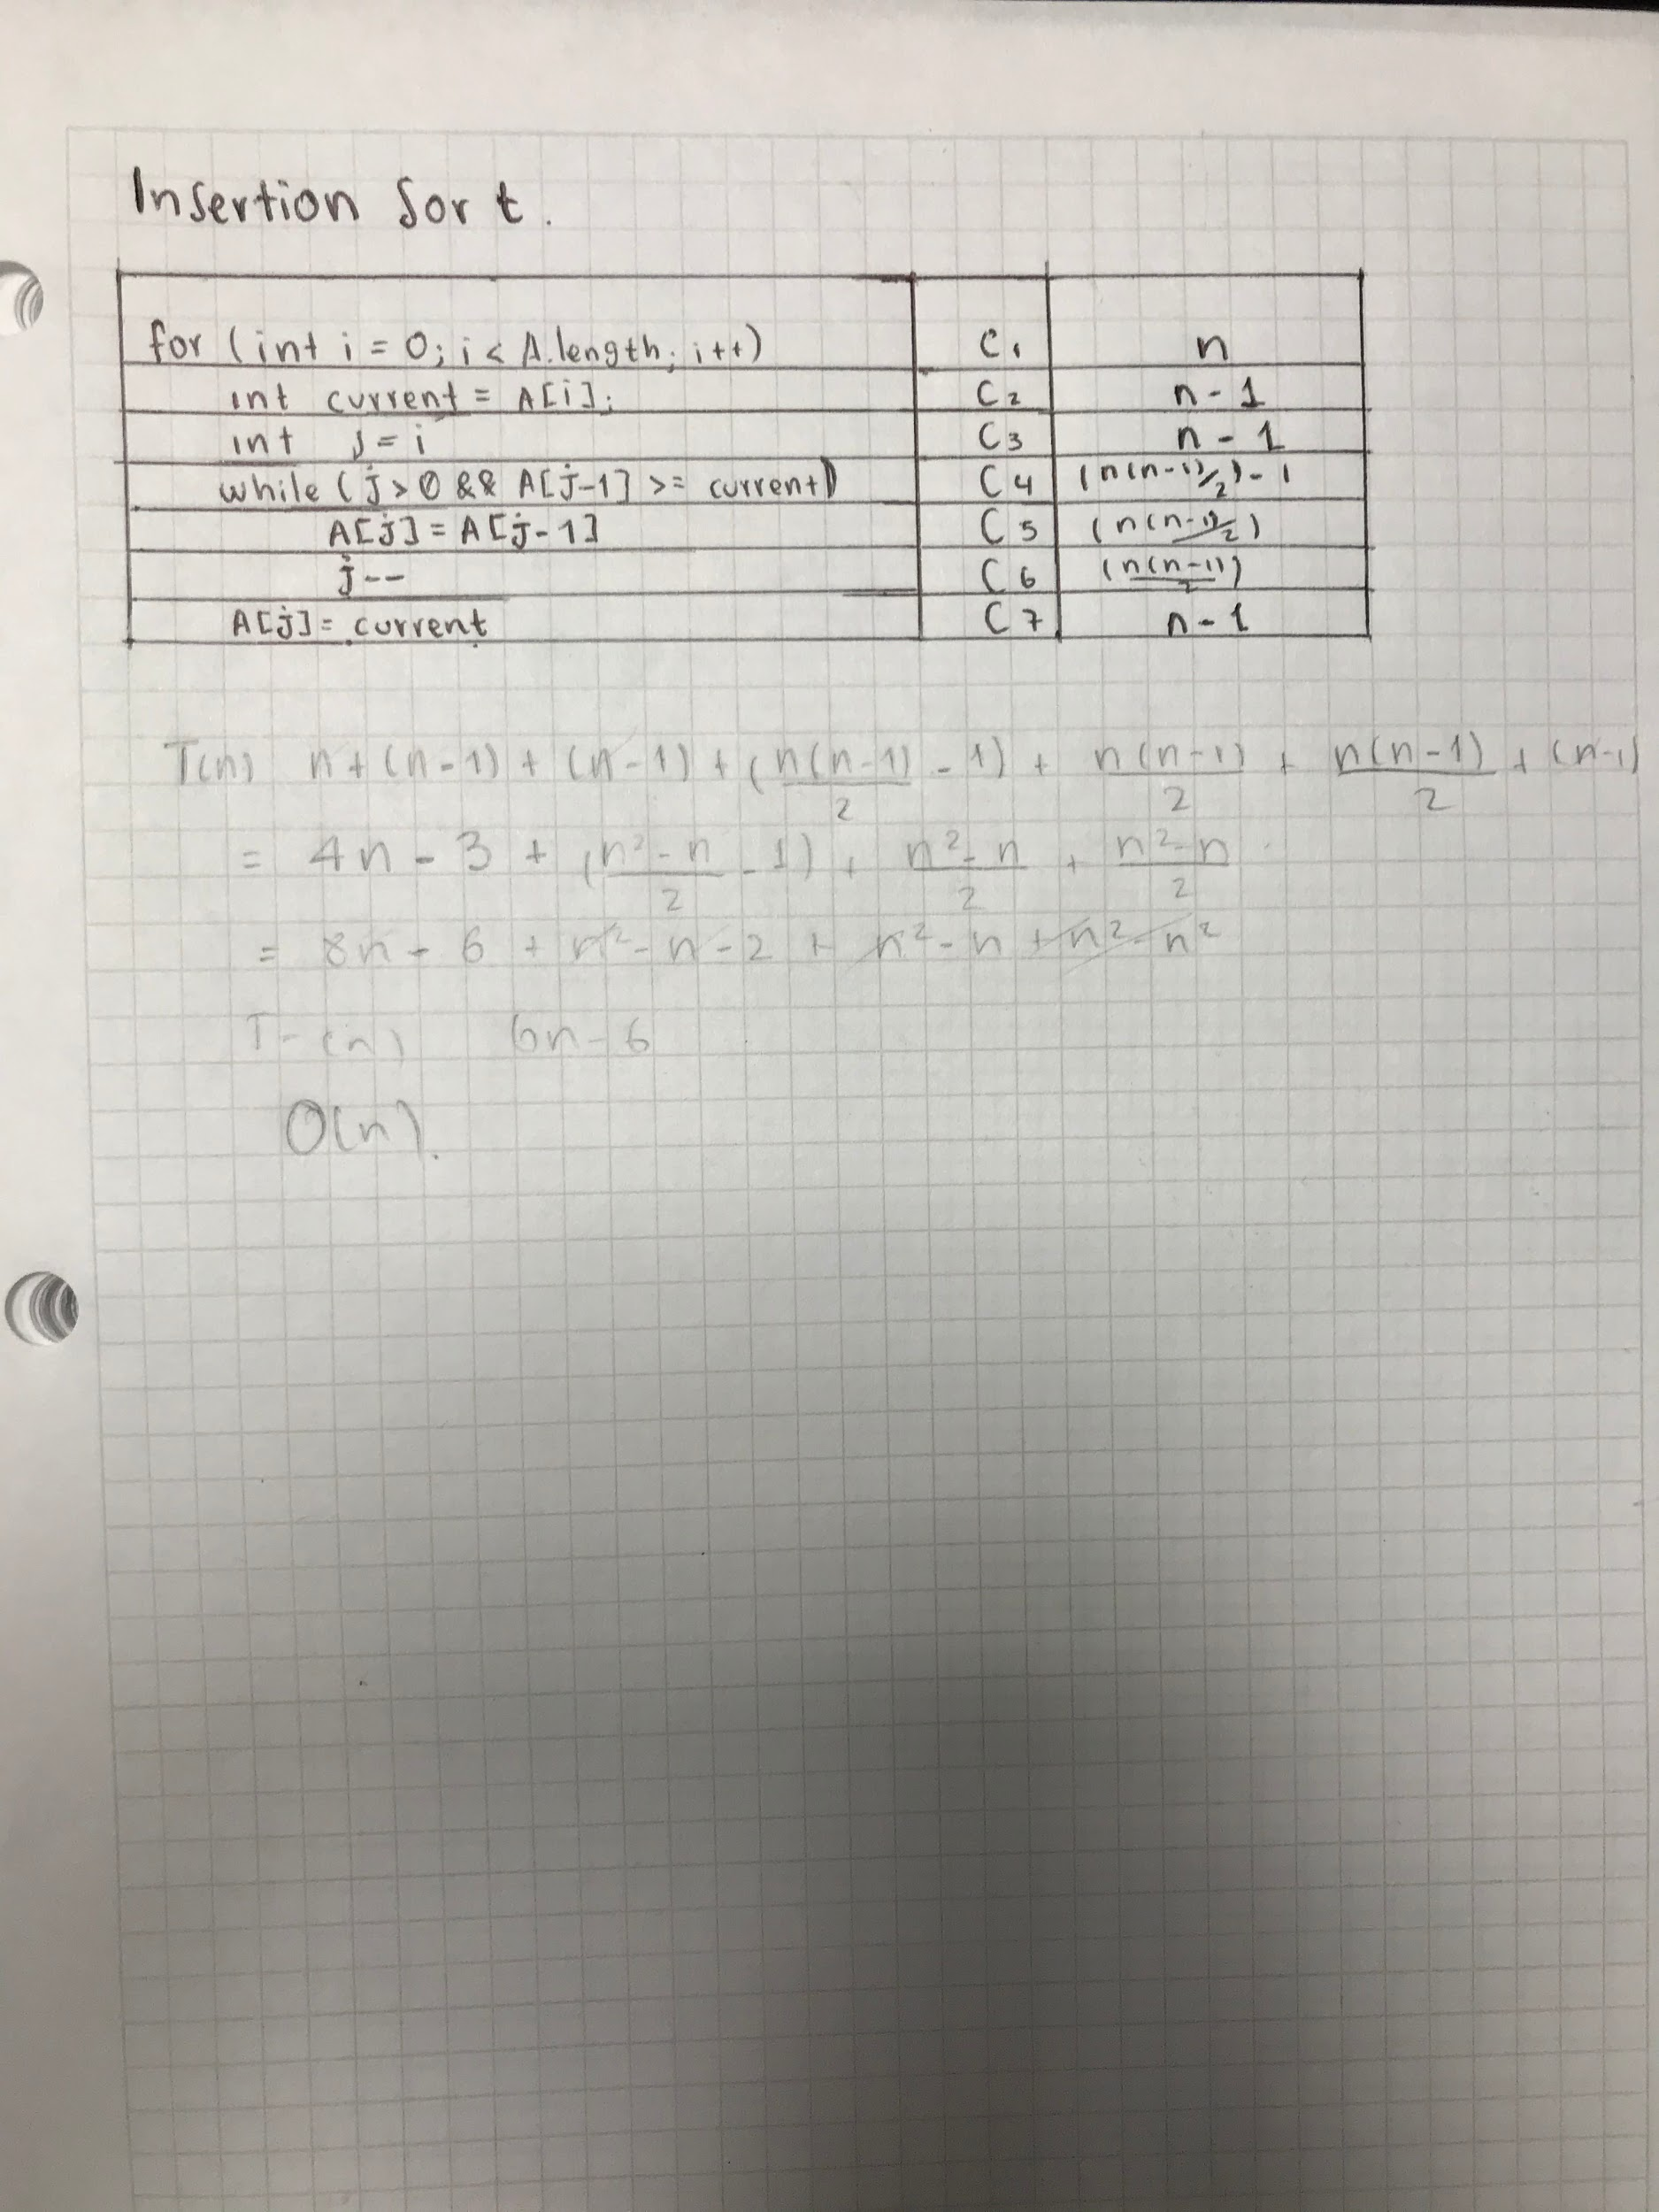 Insertion Sort.
for (int i = 0; i < A.length; i++) C1 n
int current = A[i]; C2 n-1
int j = i C3 n-1
while (j > 0 && A[j-1] >= current) C4 (n(n-1)/2)-1
A[j] = A[j-1] C5 (n(n-1)/2)
j-- C6 (n(n-1)/2)
A[j] = current C7 n-1
T(n) n + (n-1) + (n-1) + (n(n-1)/2 - 1) + n(n-1)/2 + n(n-1)/2 + (n-1)
= 4n - 3 + (n²-n/2 - 1) + n²-n/2 + n²-n/2
= 8n - 6 + n² - n - 2 + n² - n + n² - n²
T-(n) 6n-6
O(n).